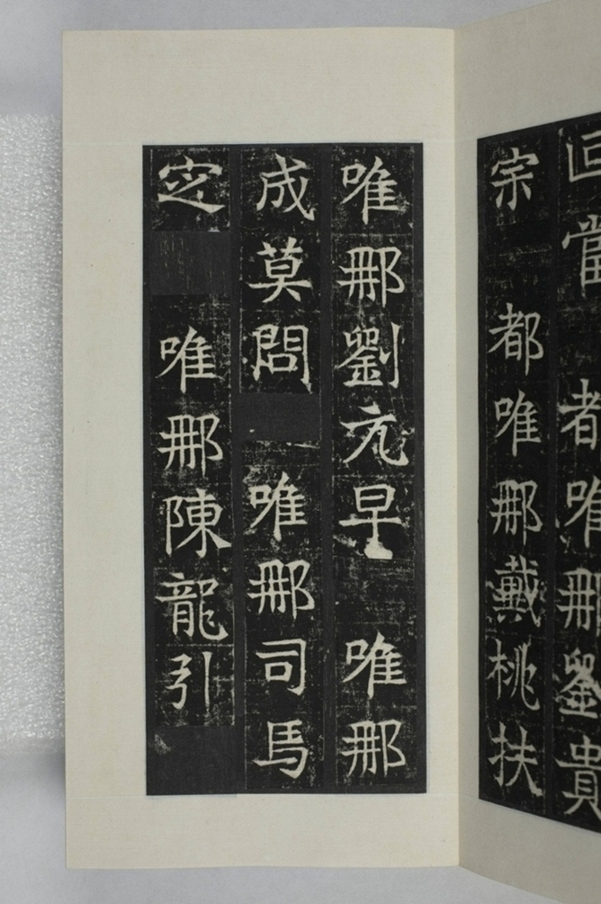 當 都唯那劉貴
宗 都唯那戴桃扶
唯那劉亢早 唯那
成莫問 唯那司馬
㝎 唯那陳龍引